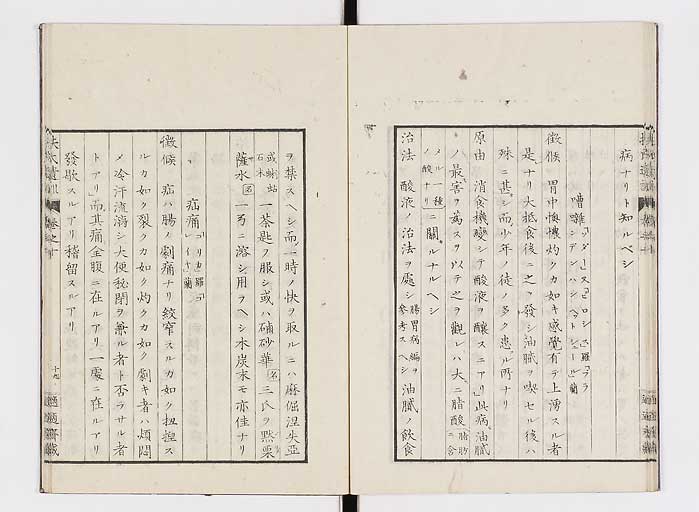 病ナリト知ルベシ
嘈囃
徴候 胃中懊憹灼クカ如キ感覺有テ上湧スル者
是ナリ大抵食後ニ之ヲ發シ油膩ヲ喫セル後ハ
殊ニ甚シ而少年ノ徒ノ多ク患ル所ナリ
原由 消食機變シテ酸液ヲ釀スニアリ此病油膩
ノ最害ヲ為スヲ以テ之ヲ觀レハ大ニ脂酸 脂肪ニ含
メル一種ノ酸ナリ ニ關ルナルヘシ
治法 酸液ノ治法ヲ處シ 腸胃病編ヲ參考スヘシ 油膩ノ飲食
ヲ禁スヘシ而一時ノ快ヲ取ルニハ麻倔涅失亞
或蝲蛄石末 一茶匙ヲ服シ或ハ硇砂華 名 三氏ヲ㸃栗
薩水 名 一弓ニ溶シ用ヲヘシ木炭末モ亦佳ナリ
疝痛
徴候 症ハ腸ノ劇痛ナリ絞窄スルカ如ク扭捏ス
ルカ如ク裂クカ如ク灼クカ如ク劇キ者ハ煩悶
メ冷汗流漓シ大便秘閉ヲ兼ル者ト否ラサル者
トアリ而其痛全腹ニ在ルアリ一處ニ在ルアリ
發歇スルアリ稽留スルアリ
扶氏遺訓 卷之十
十九
適適齋藏